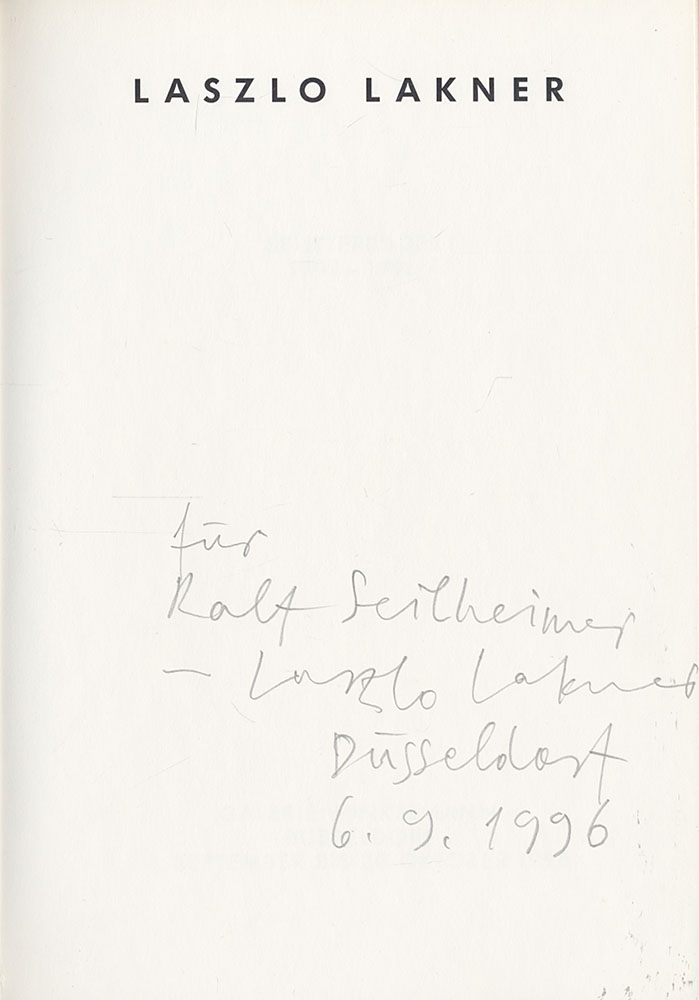 LASZLO LAKNER
für
Ralf Seilheimer
– Laszlo Lakner
Düsseldorf
6.9.1996